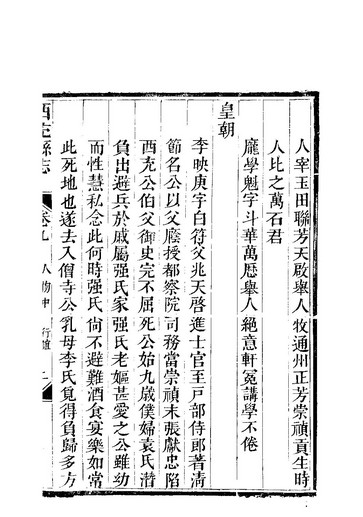 人宰玉田聯芳天啟舉人牧通州正芳崇禎貢生時
人比之萬石君
龐學魁字斗華萬曆舉人絕意軒冕講學不倦
皇朝
李映庚字白符父兆天啓進士官至戸部侍郎著清
節名公以父廕授都察院司務當崇禎末張獻忠陷
西充公伯父御史完不屈死公始九歲僕婦袁氏潛
負出避兵於戚屬强氏家强氏老嫗甚愛之公雖幼
而性慧私念此何時强氏尙不避難酒食宴樂如常
此死地也遂去入僧寺公乳母李氏覓得負歸多方
西充縣志
卷九
人物中
行誼
二